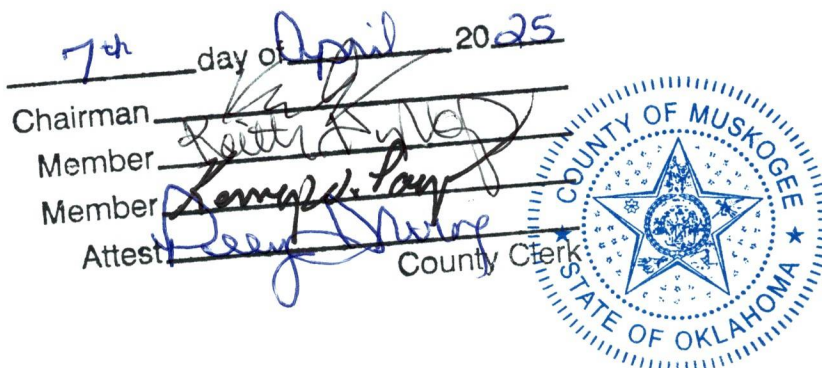 7th day of April 2025
Chairman
Member Keith
Member
Attest
County Clerk
COUNTY OF MUSKOGEE
STATE OF OKLAHOMA